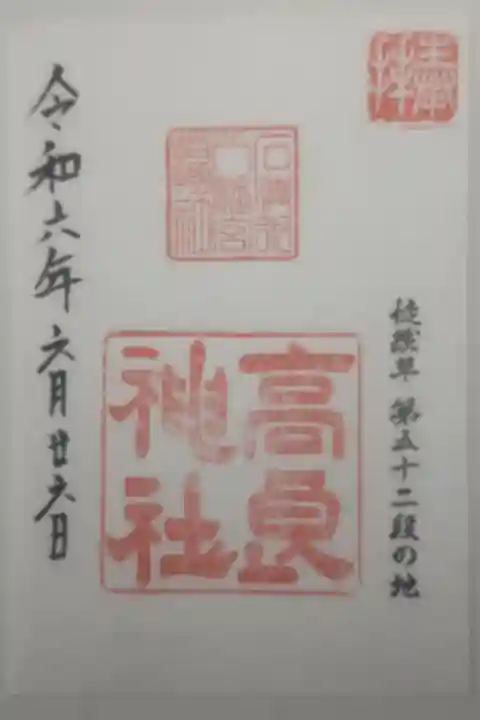 奉拝
徒然草 第五十二段の地
高良
神社
令和六年 六月廿六日